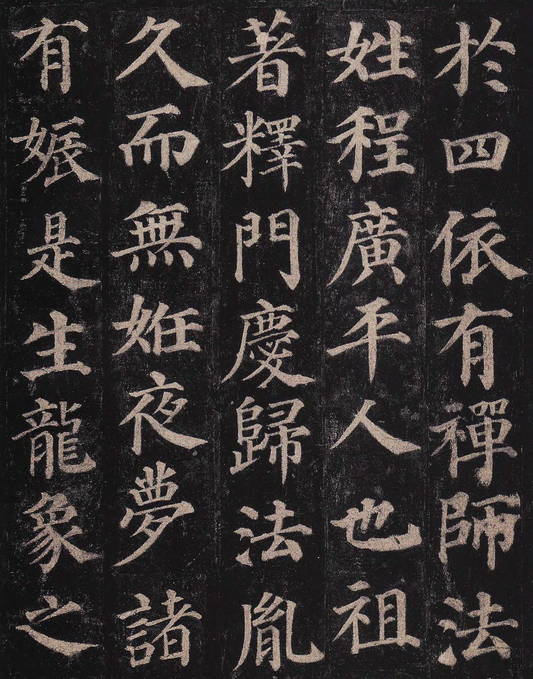 於四依有禪師法
姓程廣平人也祖
著釋門慶歸法胤
久而無姙夜夢諸
有娠是生龍象之